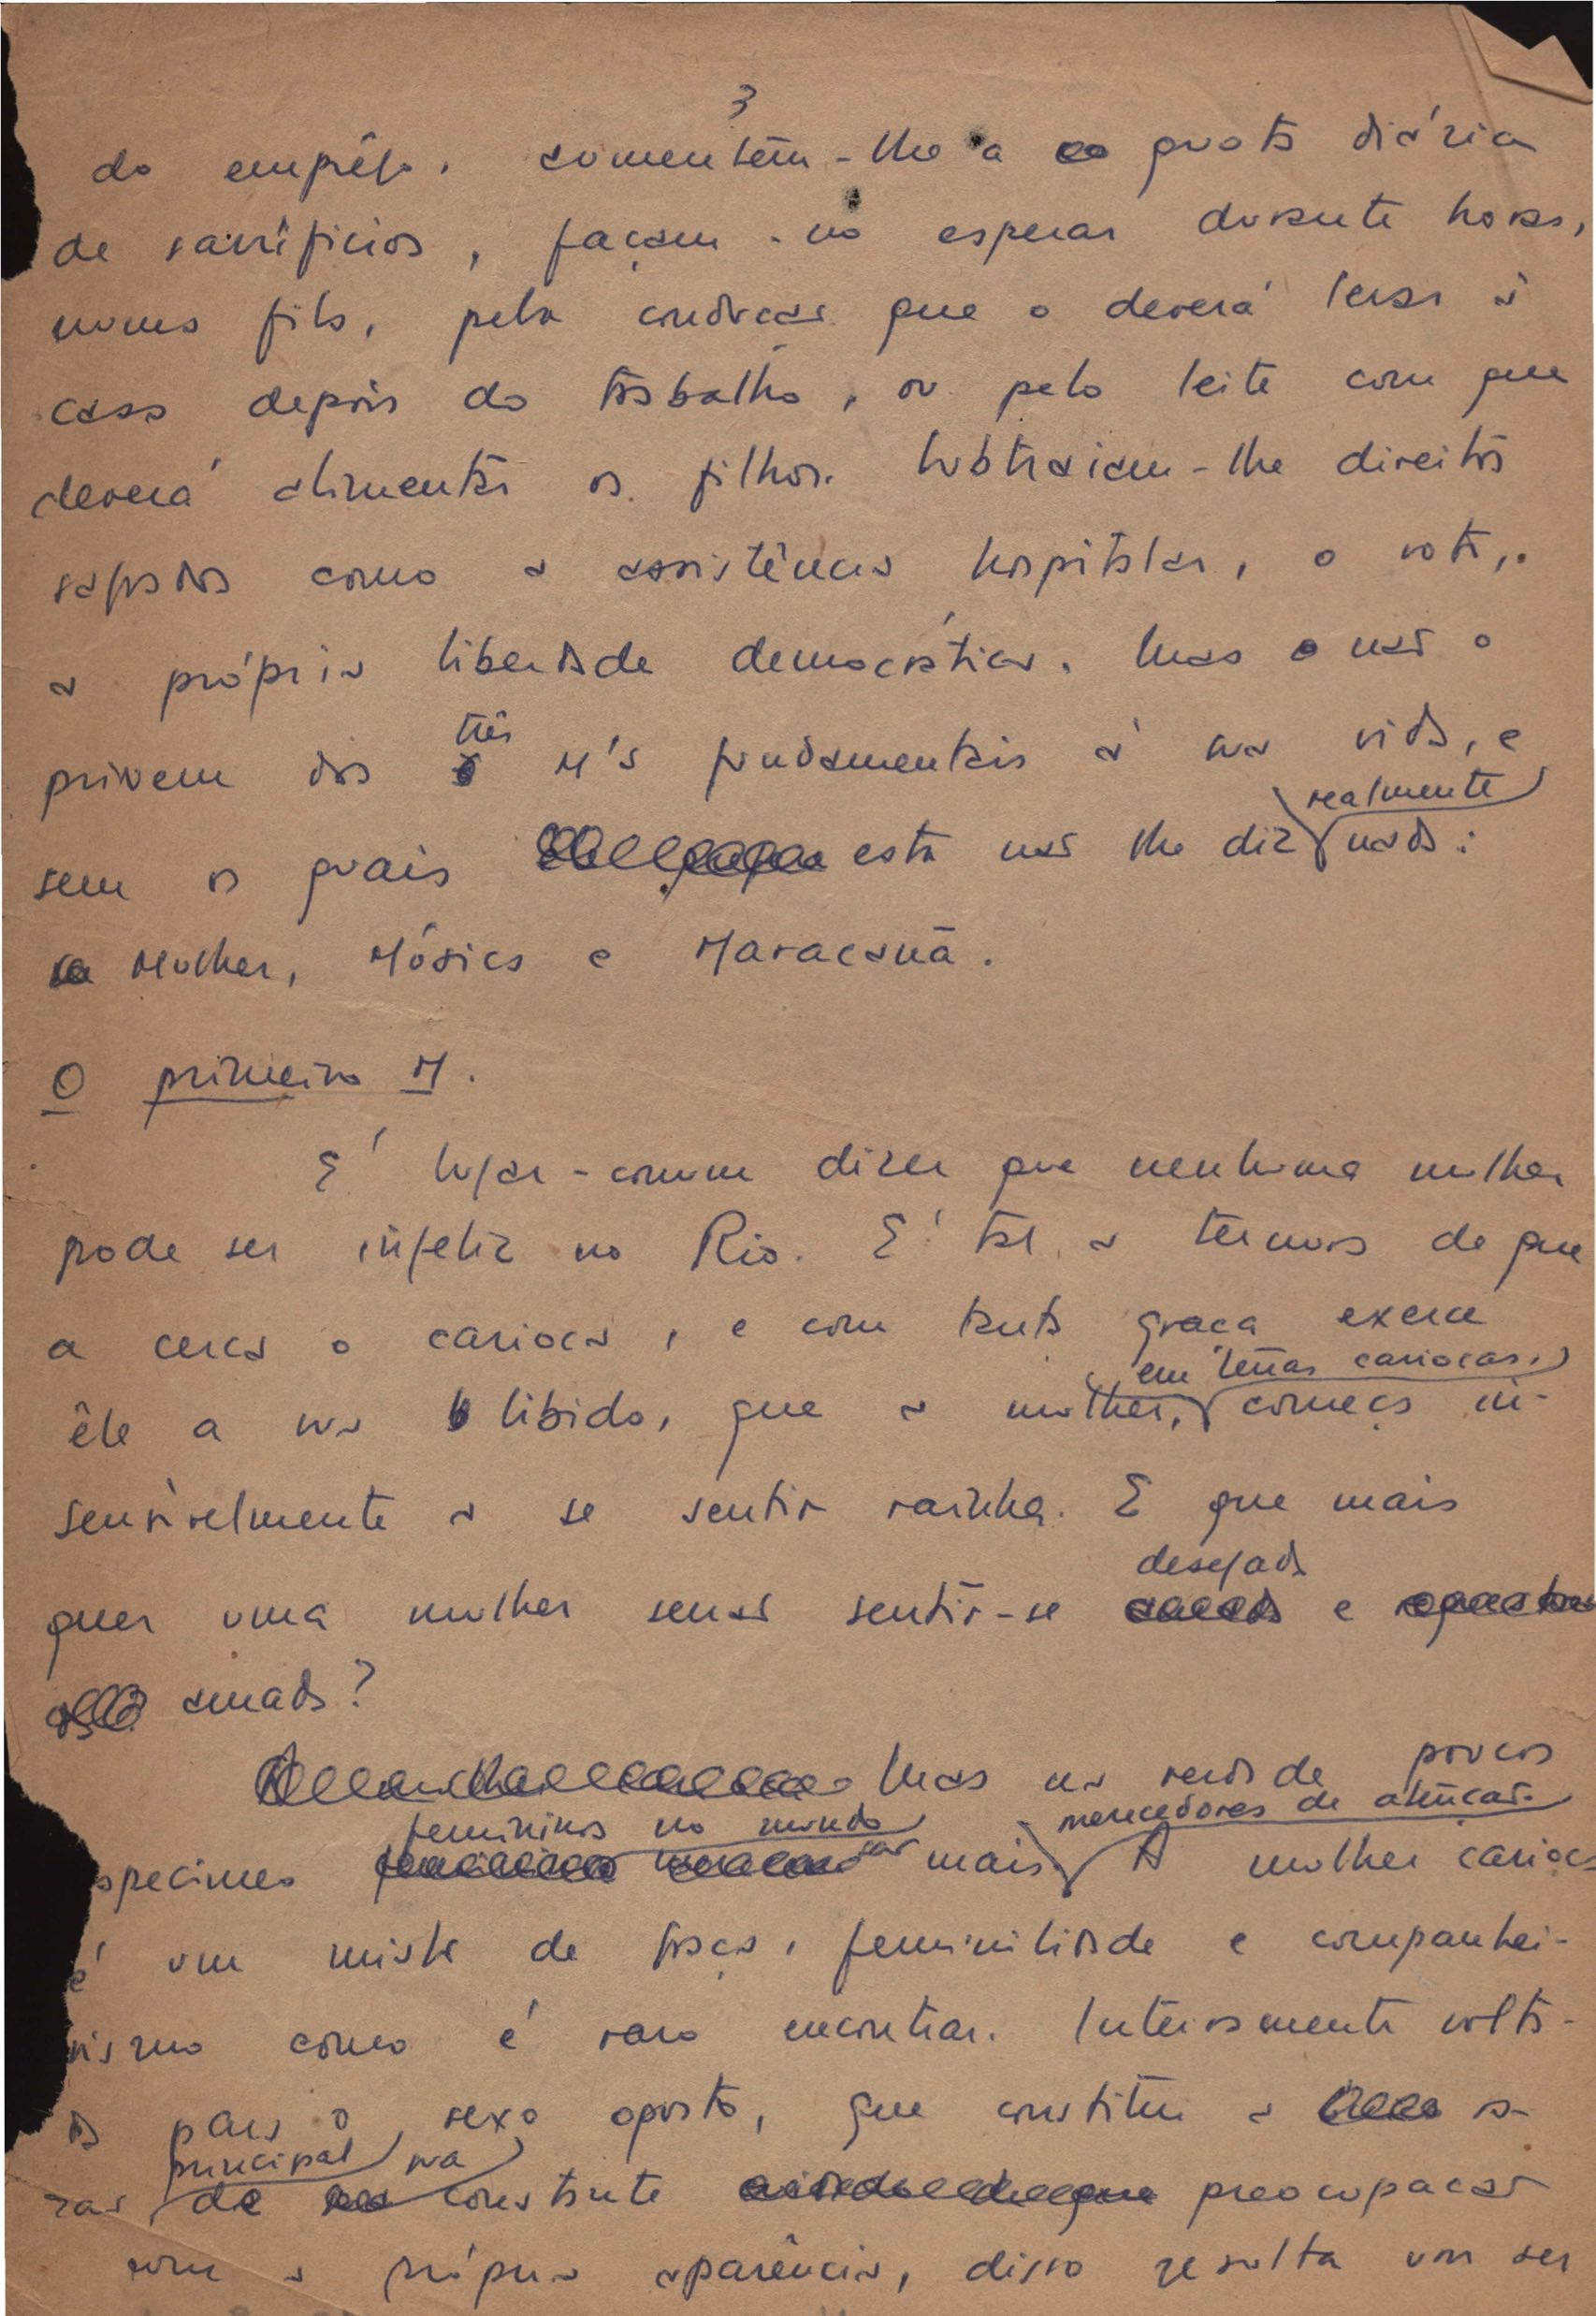 3
do emprêgo, aumentem-lhe a quota diária
de sacrifícios, façam-no esperar durante horas,
numa fila, pela condução que o deverá levar à
casa depois do trabalho, ou pelo leite com que
deverá alimentar os filhos. Subtraiam-lhe direitos
sagrados como a assistência hospitalar, o voto,
a própria liberdade democrática. Mas não o
privem dos três M's fundamentais à sua vida, e
sem os quais esta não lhe diz realmente nada:
Mulher, Música e Maracanã.
O primeiro M.
É lugar-comum dizer que nenhuma mulher
pode ser infeliz no Rio. É tal a ternura de que
a cerca o carioca, e com tanta graça exerce
êle a sua libido, que a mulher, em terras cariocas, começa in-
sensivelmente a se sentir rainha. E que mais
quer uma mulher senão sentir-se desejada e
amada?
Mas na verdade poucos
especimes femininos no mundo são mais merecedores de atenção. A mulher carioca
é um misto de graça, feminilidade e companhei-
rismo como é raro encontrar. Inteiramente volta-
da para o sexo oposto, que constitui a ra-
zão principal de sua constante preocupação
com a própria aparência, disso resulta um ser